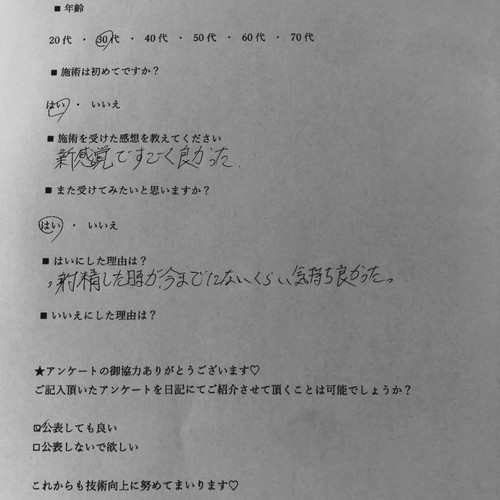 ■ 年齢
20代 ・ 30代 ・ 40代 ・ 50代 ・ 60代 ・ 70代
■ 施術は初めてですか？
はい ・ いいえ
■ 施術を受けた感想を教えてください
新感覚ですごく良かった.
■ また受けてみたいと思いますか？
はい ・ いいえ
■ はいにした理由は？
射精した時が、今までにないくらい気持ち良かった。
■ いいえにした理由は？
★アンケートの御協力ありがとうございます♡
ご記入頂いたアンケートを日記にてご紹介させて頂くことは可能でしょうか？
☑公表しても良い
□公表しないで欲しい
これからも技術向上に努めてまいります♡